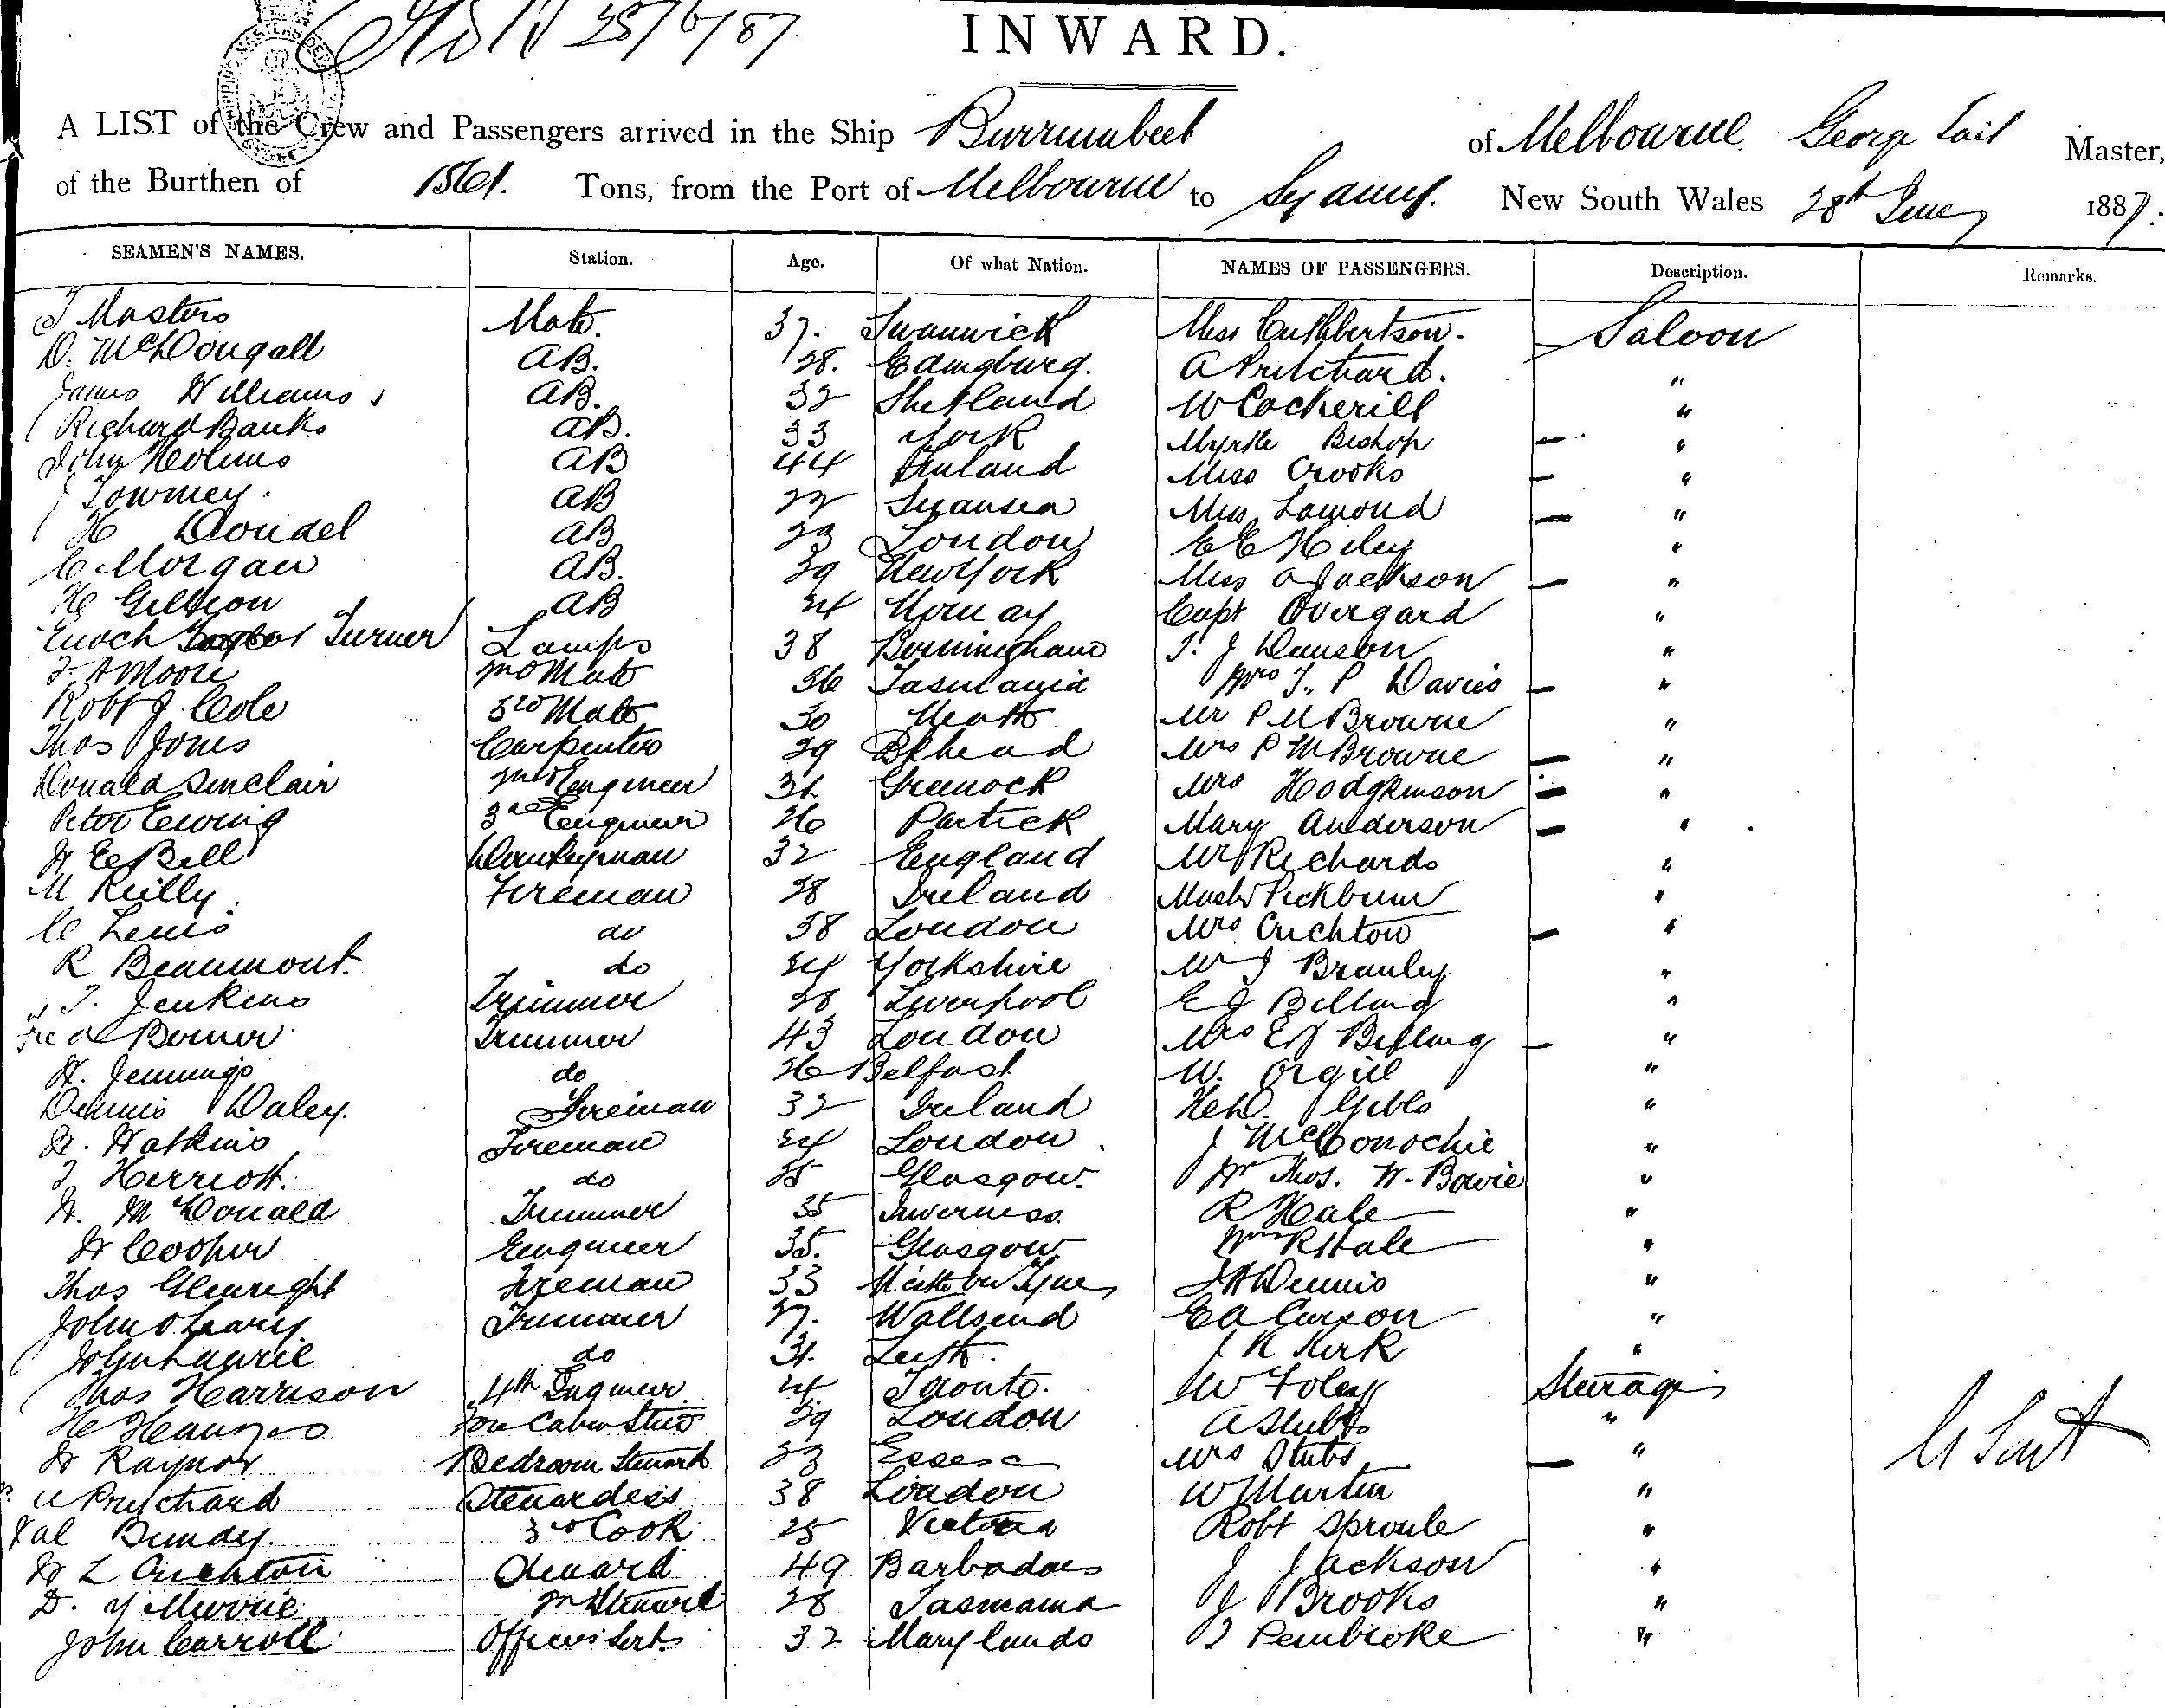 28/6/87
INWARD.
A LIST of the Crew and Passengers arrived in the Ship Burrumbeet of Melbourne George Tait Master,
of the Burthen of 1561. Tons, from the Port of Melbourne to Sydney. New South Wales 28th June 1887.
SEAMEN'S NAMES. Station. Age. Of what Nation. NAMES OF PASSENGERS. Description. Remarks.
J Masters Mate. 37. Swanwick Miss Cuthbertson. Saloon
D. McDougall AB. 28. Edingburg. A Pritchard. "
James Williams AB. 32 Shetland W Cockerill "
Richard Banks AB. 33 York Myrtle Bishop "
John AB 44 Finland Miss Crooks "
J Towmey. AB 22 Swansea Miss Lamond "
H Doudel AB 23 London E E Hiley "
C Morgan AB. 29 New York Miss A Jackson "
H AB 24 Norway Capt Overgard "
Enoch Turner Lamps 38 Birmingham T. J Dawson "
F. A Moore 2nd Mate 26 Tasmania Mrs T. P Davies "
Robt J. Cole 3rd Mate 30 Neath Mr P M Browne "
Thos Jones Carpenter 29 B'head Mrs P M Browne "
Donald Sinclair 2nd Engineer 31. Greenock Mrs Hodgkinson "
Peter Ewing 3rd Engineer 26 Partick Mary Anderson "
W E Bell Donkeyman 32 England Mr Richards "
M Reilly Fireman 28 Ireland Master Pickburn "
C Lewis do 38 London Mrs Crichton "
R Beaumont. do 24 Yorkshire W J Branley "
T. Jenkins Trimmer 28 Liverpool E J Billing "
Fred Berner Trimmer 43 London Mrs E J Billing "
W. Jennings do 26 Belfast W. Orgill "
Dennis Daley. Fireman 32 Ireland Gibbs "
W. Watkins Fireman 24 London J McConochie "
T Herriott. do 25 Glasgow. Dr Thos. W. Bowie "
W. McDonald Trimmer 35 Inverness R Hale "
W Cooper Engineer 35. Glasgow Mrs R Hale "
Thos Glenright Fireman 33 Dennis "
John O Leary Trimmer 27. Wallsend E A Curzon "
John Laurie do 31. Leith. J R Kirk "
Thos Harrison 4th Engineer 24 Toronto. W Foley Steerage
H Fore Cabin Stew 29 London A Stubbs "
W Raynor Bedroom Steward 23 Essex Mrs Stubs "
A Pritchard Stewardess 38 London W Martin "
Val Bundy. 3rd Cook 25 Victoria Robt Sproule "
W L Crichton Steward 49 Barbadoes J Jackson "
D. 2n Steward 28 Tasmania J Brooks "
John Carroll Officers Servt. 32 Marylands J Pembroke "
G Tait